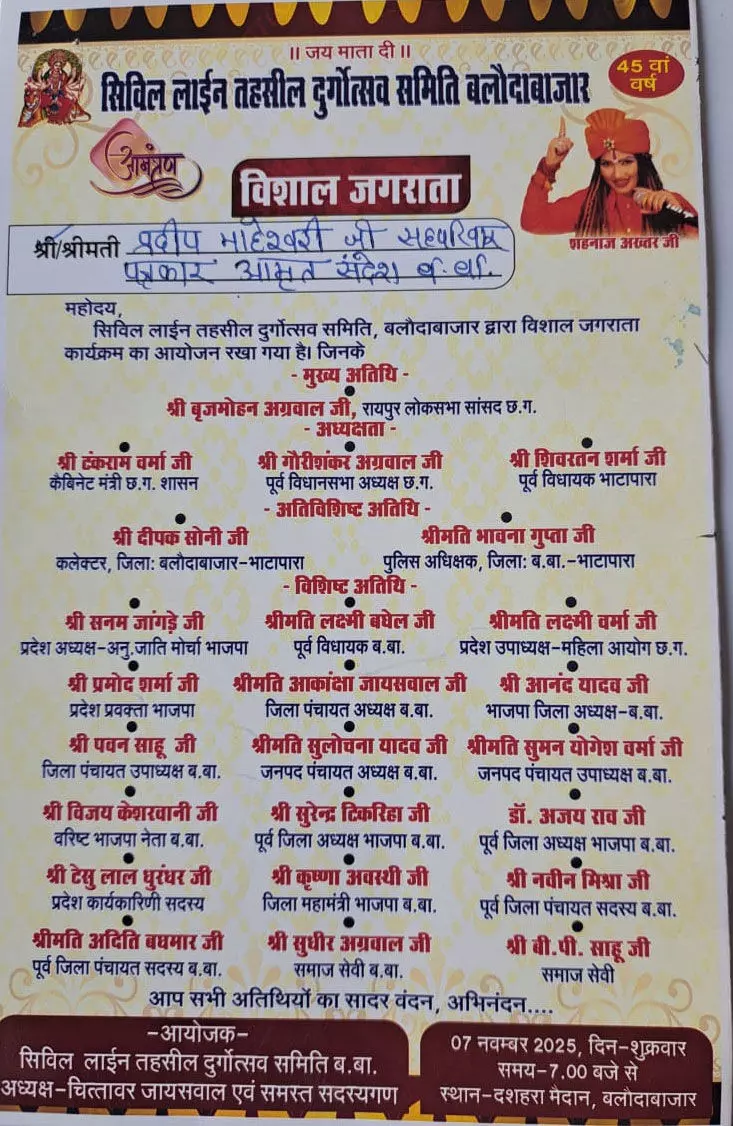 ॥ जय माता दी ॥
सिविल लाईन तहसील दुर्गोत्सव समिति बलौदाबाजार
45 वां
वर्ष
आमंत्रण
विशाल जगराता
शहनाज अख्तर जी
श्री/श्रीमती प्रदीप माहेश्वरी जी सहपरिवार
पत्रकार अमृत संदेश ब. बा.
महोदय,
सिविल लाईन तहसील दुर्गोत्सव समिति, बलौदाबाजार द्वारा विशाल जगराता
कार्यक्रम का आयोजन रखा गया है। जिनके
- मुख्य अतिथि -
श्री बृजमोहन अग्रवाल जी, रायपुर लोकसभा सांसद छ.ग.
- अध्यक्षता -
श्री टंकराम वर्मा जी श्री गौरीशंकर अग्रवाल जी श्री शिवरतन शर्मा जी
कैबिनेट मंत्री छ.ग. शासन पूर्व विधानसभा अध्यक्ष छ.ग. पूर्व विधायक भाटापारा
- अतिविशिष्ट अतिथि -
श्री दीपक सोनी जी श्रीमति भावना गुप्ता जी
कलेक्टर, जिला: बलौदाबाजार-भाटापारा पुलिस अधिक्षक, जिला: ब.बा.-भाटापारा
- विशिष्ट अतिथि -
श्री सनम जांगड़े जी श्रीमति लक्ष्मी बघेल जी श्रीमति लक्ष्मी वर्मा जी
प्रदेश अध्यक्ष-अनु.जाति मोर्चा भाजपा पूर्व विधायक ब.बा. प्रदेश उपाध्यक्ष-महिला आयोग छ.ग.
श्री प्रमोद शर्मा जी श्रीमति आकांक्षा जायसवाल जी श्री आनंद यादव जी
प्रदेश प्रवक्ता भाजपा जिला पंचायत अध्यक्ष ब.बा. भाजपा जिला अध्यक्ष-ब.बा.
श्री पवन साहू जी श्रीमति सुलोचना यादव जी श्रीमति सुमन योगेश वर्मा जी
जिला पंचायत उपाध्यक्ष ब.बा. जनपद पंचायत अध्यक्ष ब.बा. जनपद पंचायत उपाध्यक्ष ब.बा.
श्री विजय केशरवानी जी श्री सुरेन्द्र टिकरिहा जी डॉ. अजय राव जी
वरिष्ट भाजपा नेता ब.बा. पूर्व जिला अध्यक्ष भाजपा ब.बा. पूर्व जिला अध्यक्ष भाजपा ब.बा.
श्री टेसु लाल धुरंधर जी श्री कृष्णा अवस्थी जी श्री नवीन मिश्रा जी
प्रदेश कार्यकारिणी सदस्य जिला महामंत्री भाजपा ब.बा. पूर्व जिला पंचायत सदस्य ब.बा.
श्रीमति अदिति बघमार जी श्री सुधीर अग्रवाल जी श्री बी.पी. साहू जी
पूर्व जिला पंचायत सदस्य ब.बा. समाज सेवी ब.बा. समाज सेवी
आप सभी अतिथियों का सादर वंदन, अभिनंदन....
-आयोजक-
सिविल लाईन तहसील दुर्गोत्सव समिति ब.बा.
अध्यक्ष-चित्तावर जायसवाल एवं समस्त सदस्यगण
07 नवम्बर 2025, दिन-शुक्रवार
समय-7.00 बजे से
स्थान-दशहरा मैदान, बलौदाबाजार